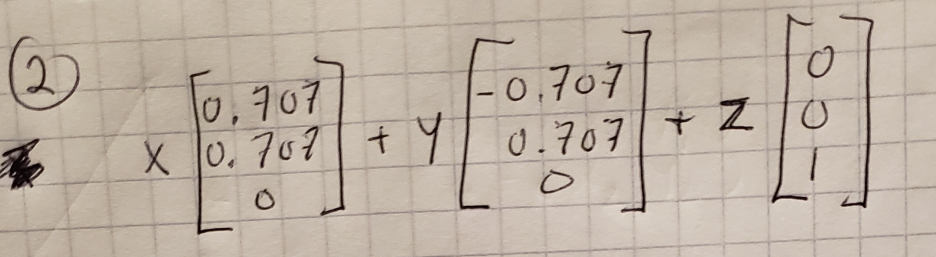 ②
x [0.707 0.707 0] + y [-0.707 0.707 0] + z [0 0 1]